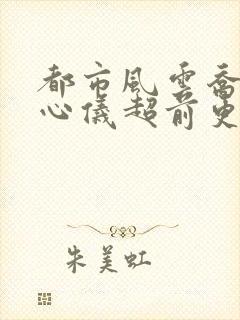 都市風雲喬
心儀超前更
朱美虹